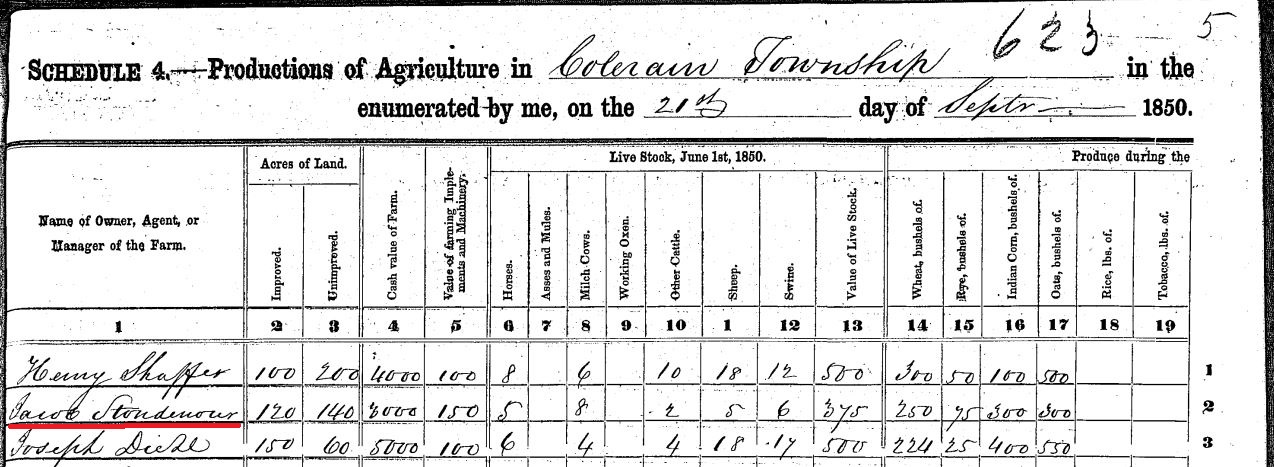 623 5
SCHEDULE 4.—Productions of Agriculture in Colerain Township in the
enumerated by me, on the 20th day of Septr 1850.
Name of Owner, Agent, or Manager of the Farm.
Acres of Land.
Improved.
Unimproved.
Cash value of Farm.
Value of farming Implements and Machinery.
Live Stock, June 1st, 1850.
Horses.
Asses and Mules.
Milch Cows.
Working Oxen.
Other Cattle.
Sheep.
Swine.
Value of Live Stock.
Produce during the
Wheat, bushels of.
Rye, bushels of.
Indian Corn, bushels of.
Oats, bushels of.
Rice, lbs. of.
Tobacco, lbs. of.
1 2 3 4 5 6 7 8 9 10 1 12 13 14 15 16 17 18 19
Henry Shaffer 100 200 4000 100 8 6 10 18 12 500 300 50 100 500 1
Jacob Stondenour 120 140 3000 150 5 8 2 5 6 375 250 75 300 300 2
Joseph Diehl 150 60 5000 100 6 4 4 18 17 500 224 25 400 550 3